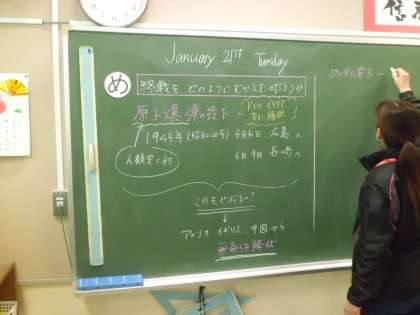 January 21st Tuesday
め 終戦をどのようにむかえたのだろうか
原子爆弾の投下
ドイツ イタリア
降伏
1945年(昭和20年) 8月6日 広島へ
8月9日 長崎へ
人類史上初
この先どうなるの?
↓
アメリカ イギリス、中国から
無条件降伏
ポツダム宣言